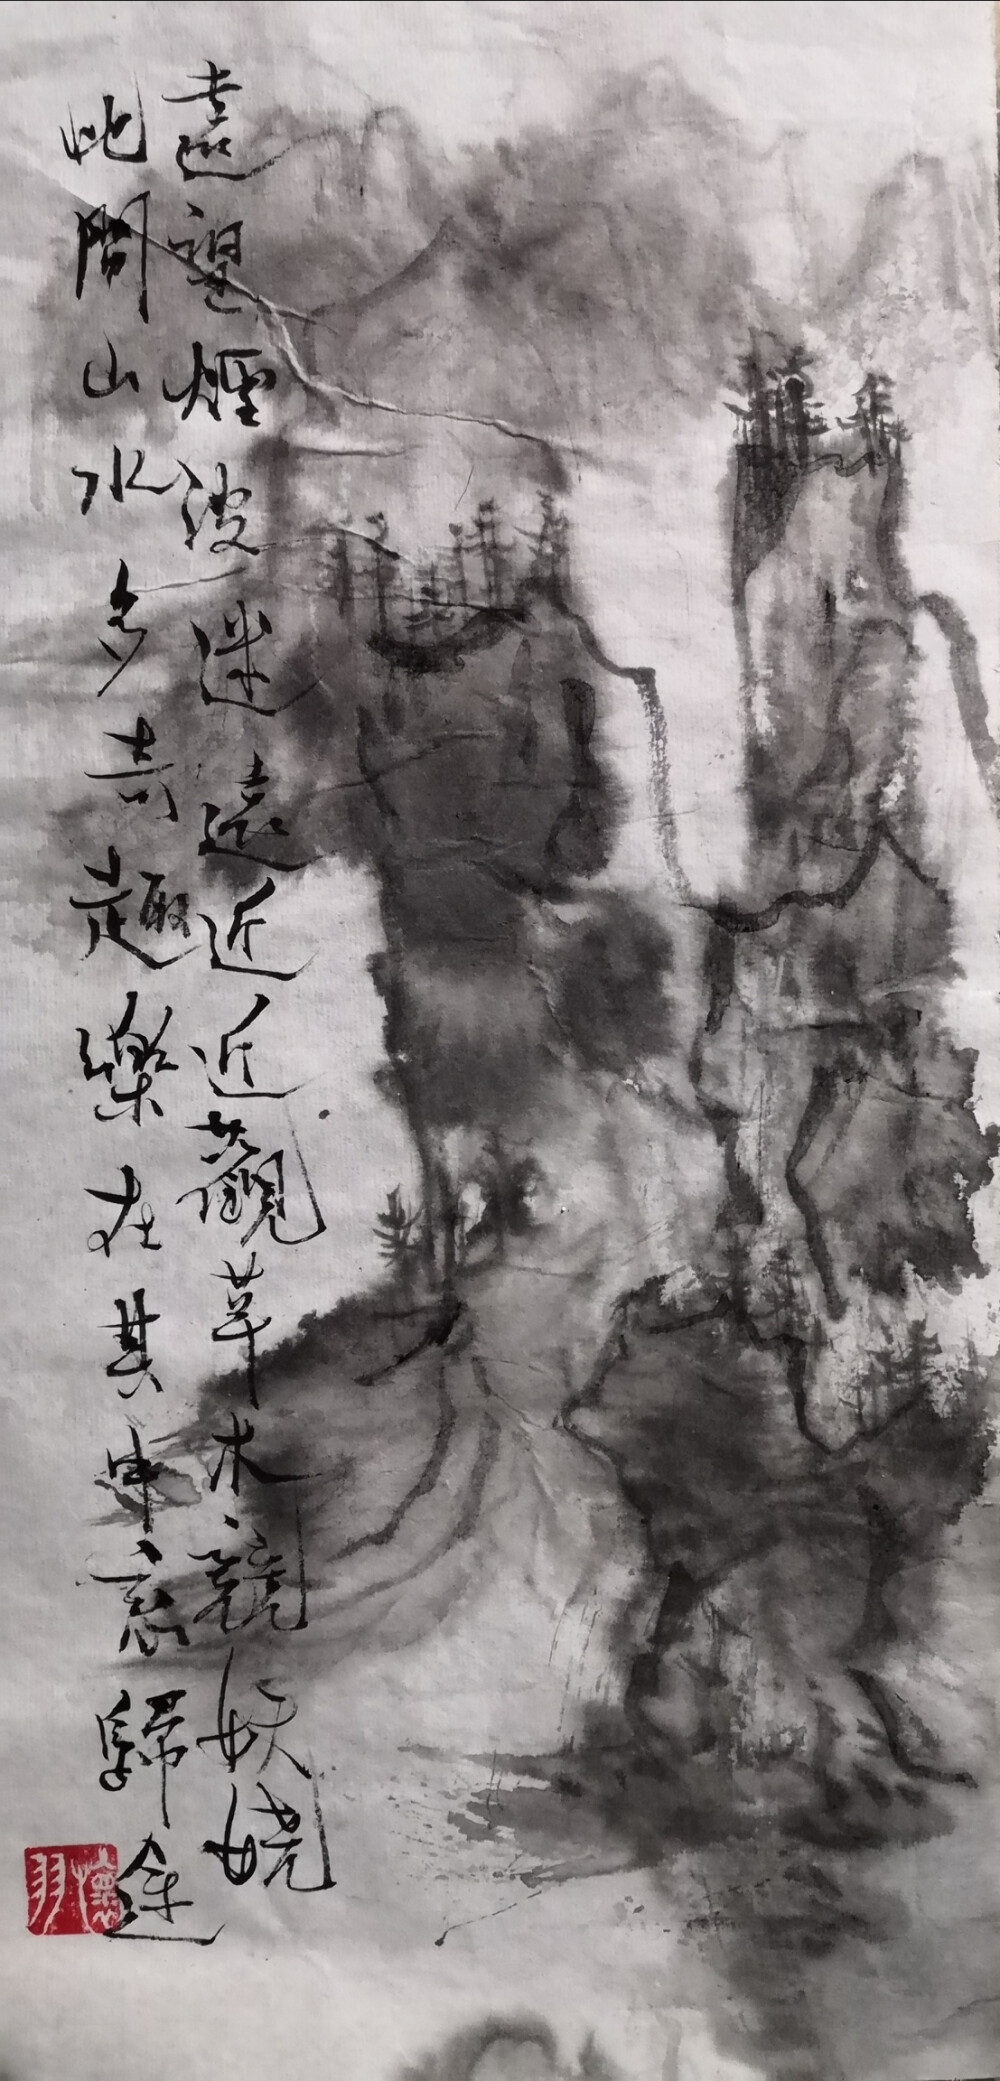 遠望煙波迷遠近近觀草木競妖嬈
此間山水多奇趣樂在其中忘歸途